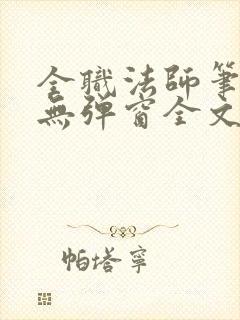 全職法師筆
無彈窗全文
帕塔寧